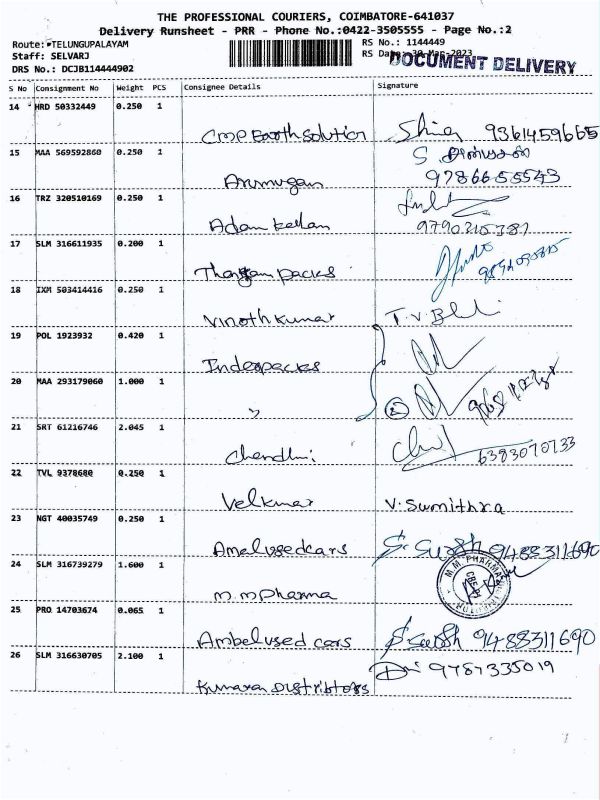 THE PROFESSIONAL COURIERS, COIMBATORE-641037
Delivery Runsheet - PRR - Phone No.:0422-3505555 - Page No.:2
Route: TELUNGUPALAYAM RS No.: 1144449
Staff: SELVARJ RS Date: 30-Mar-2023
DOCUMENT DELIVERY
DRS No.: DCJB114444902
S No Consignment No Weight PCS Consignee Details Signature
14 HRD 50332449 0.250 1
CMP Earth Solution 9361459665
15 MAA 569592860 0.250 1 S.
Arumugan 9786655543
16 TRZ 320510169 0.250 1
Adam kellam 9790215387
17 SLM 316611935 0.200 1
Thangam packs
18 IXM 503414416 0.250 1
Vinoth kumar T.V.
19 POL 1923932 0.420 1
Indeopacks
20 MAA 293179060 1.000 1
" 2
21 SRT 61216746 2.045 1
Chendhi: 6383070733
22 TVL 9378680 0.250 1
Velkumar V. Sumithra
23 NGT 40035749 0.250 1
Amelusedcars S. Suresh 9488311690
24 SLM 316739279 1.600 1
M.M. PHARMA
m.m pharma
25 PRO 14703674 0.065 1
Ambelused cars S. Suresh 9488311690
26 SLM 316630705 2.100 1 9787335019
Kumaran Distributors